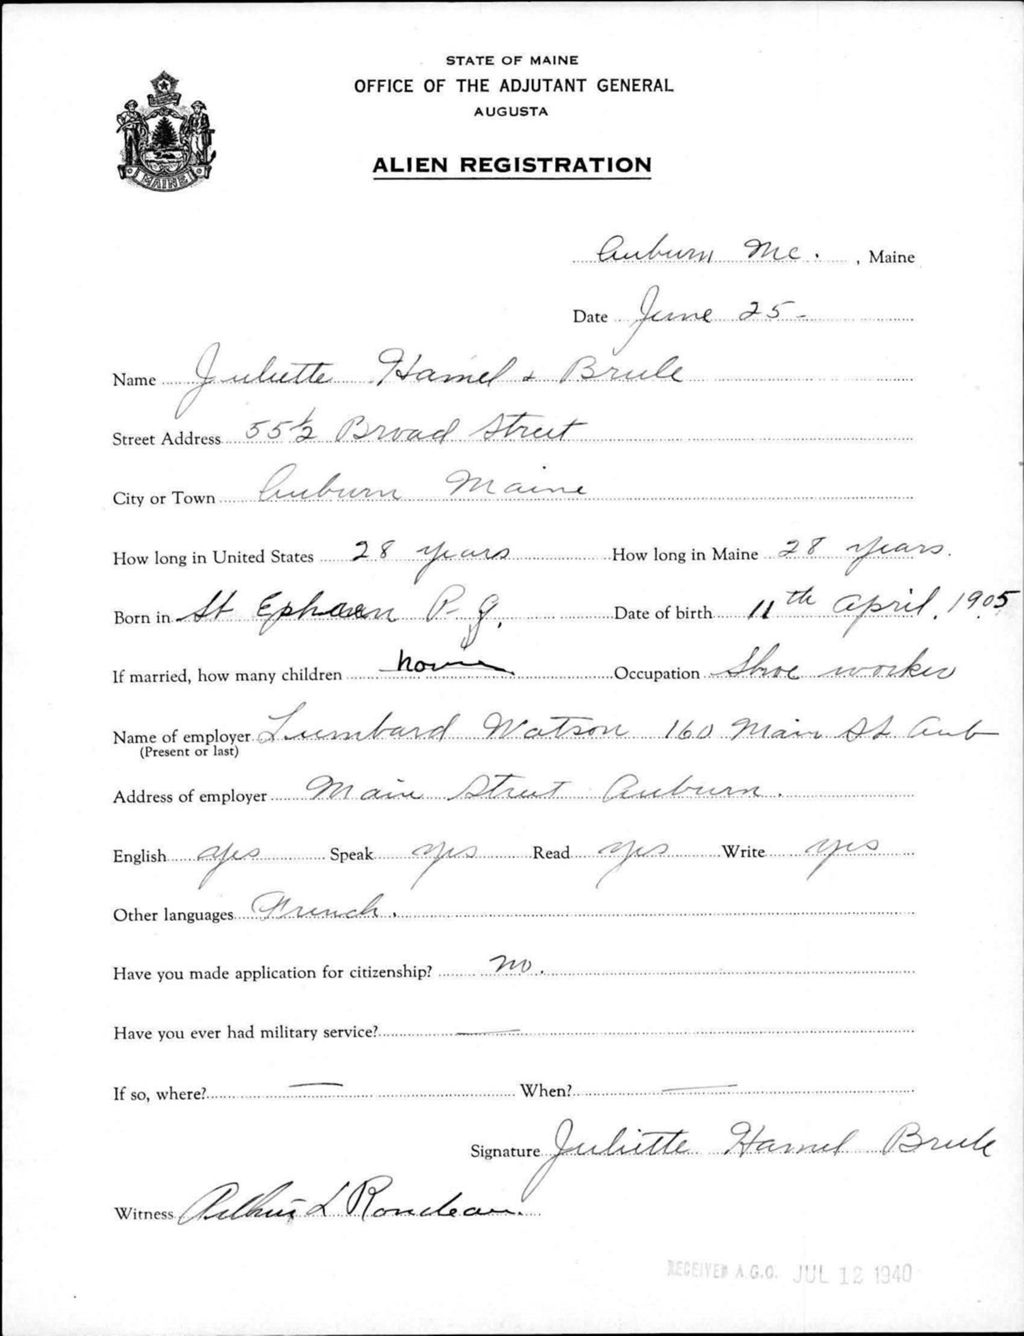 STATE OF MAINE
OFFICE OF THE ADJUTANT GENERAL
AUGUSTA
MAINE
ALIEN REGISTRATION
Auburn Me. , Maine
Date June 25-
Name Juliette Hamel Brule
Street Address 55 1/2 Broad Street
City or Town Auburn Maine
How long in United States 28 years How long in Maine 28 years.
Born in St Ephrem P-Q. Date of birth 11th April, 1905
If married, how many children none Occupation Shoe worker
Name of employer Lumbard Watson 160 Main St Aub
(Present or last)
Address of employer Main Street Auburn.
English yes Speak yes Read yes Write yes
Other languages French.
Have you made application for citizenship? no.
Have you ever had military service? —
If so, where? — When? —
Signature Juliette Hamel Brule
Witness Arthur L Rondeau.
RECEIVED A.G.O. JUL 12 1940